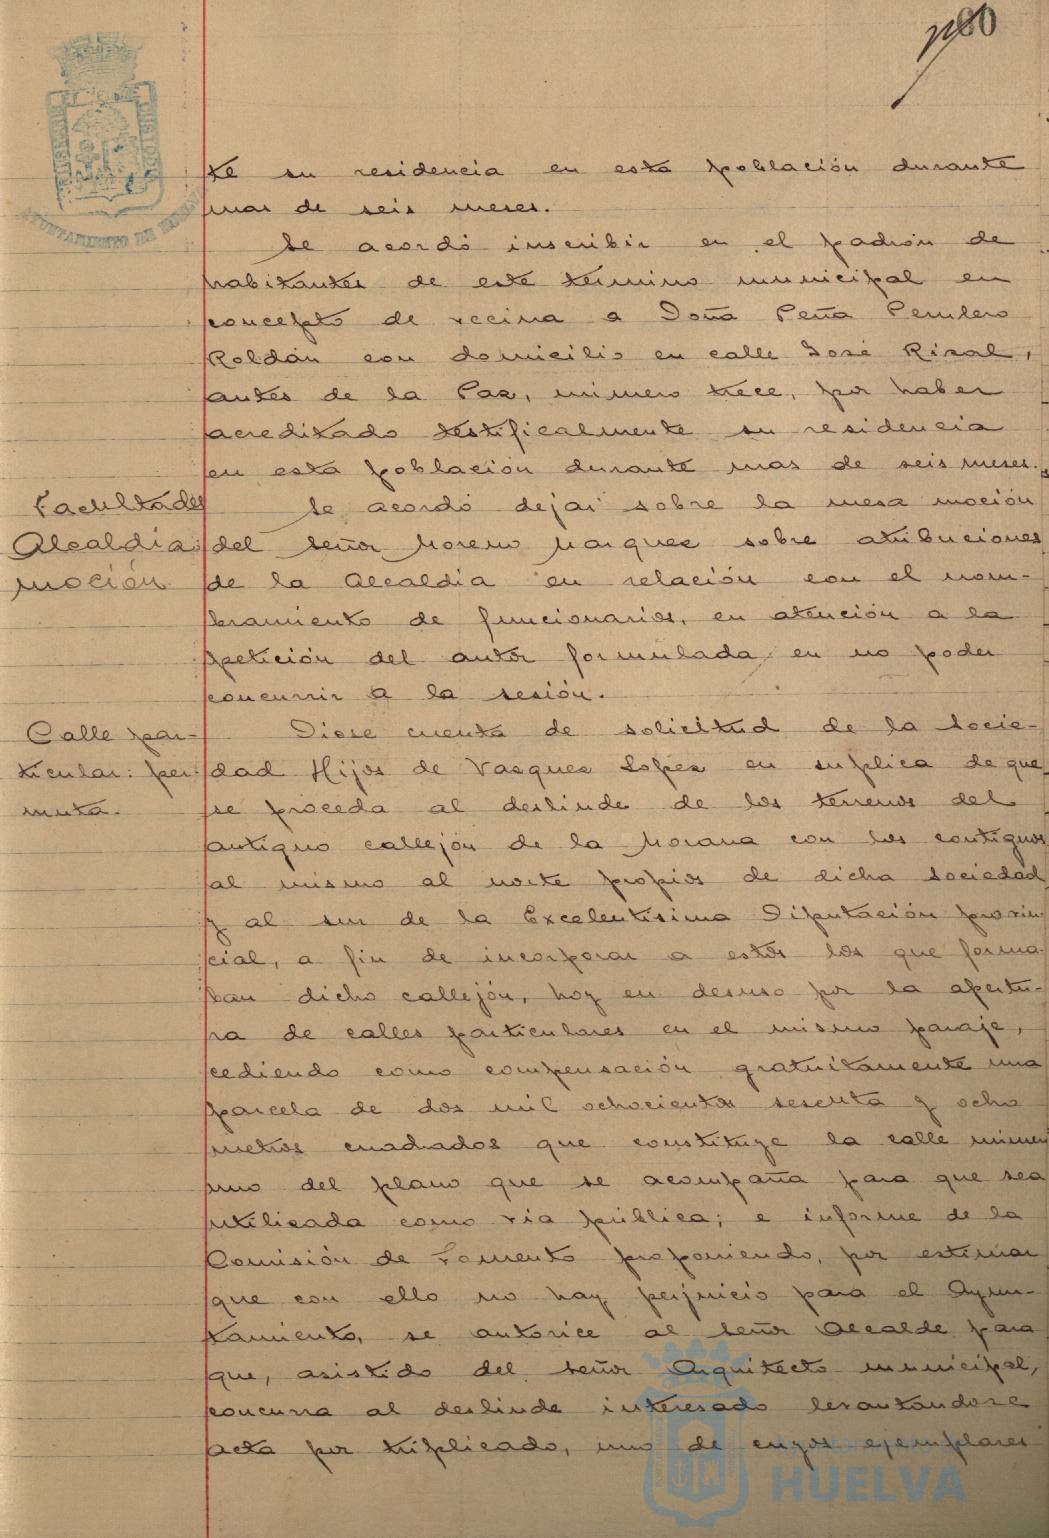 80
AYUNTAMIENTO DE HUELVA
te su residencia en esta población durante
mas de seis meses.
Se acordó inscribir en el padrón de
habitantes de este término municipal en
concepto de vecina a Doña Peña Perulero
Roldán con domicilio en calle José Rizal,
antes de la Paz, número trece, por haber
acreditado testificalmente su residencia
en esta población durante mas de seis meses.
Facultades
Alcaldia:
moción
Se acordó dejar sobre la mesa moción
del señor Moreno Marquez sobre atribuciones
de la Alcaldia en relación con el nom-
bramiento de funcionarios, en atención a la
petición del autor formulada, en no poder
concurrir a la sesión.
Calle par-
ticular: per-
muta.
Diose cuenta de solicitud de la Socie-
dad Hijos de Vasquez Lopez en suplica de que
se proceda al deslinde de los terrenos del
antiguo callejón de la Morana con los contiguos
al mismo al norte propios de dicha Sociedad
y al sur de la Excelentisima Diputación provin-
cial, a fin de incorporar a estos los que forma-
ban dicho callejón, hoy en desuso por la apertu-
ra de calles particulares en el mismo paraje,
cediendo como compensación gratuitamente una
parcela de dos mil ochocientos sesenta y ocho
metros cuadrados que constituye la calle número
uno del plano que se acompaña para que sea
utilizada como via pública; e informe de la
Comisión de Fomento proponiendo, por estimar
que con ello no hay perjuicio para el Ayun-
tamiento, se autorice al señor Alcalde para
que, asistido del señor Arquitecto municipal,
concurra al deslinde interesado levantandose
acta por triplicado, uno de cuyos ejemplares
HUELVA